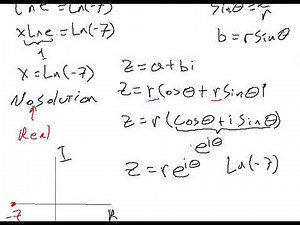 Lne = Ln(-7)
xLne = Ln(-7)
1
x = Ln(-7)
No solution
Real
I
-7
R
sinθ =
b = r sinθ
z = a + bi
z = r cosθ + r sinθ i
z = r (cosθ + i sinθ)
e^iθ
z = r e^iθ
Ln(-7)